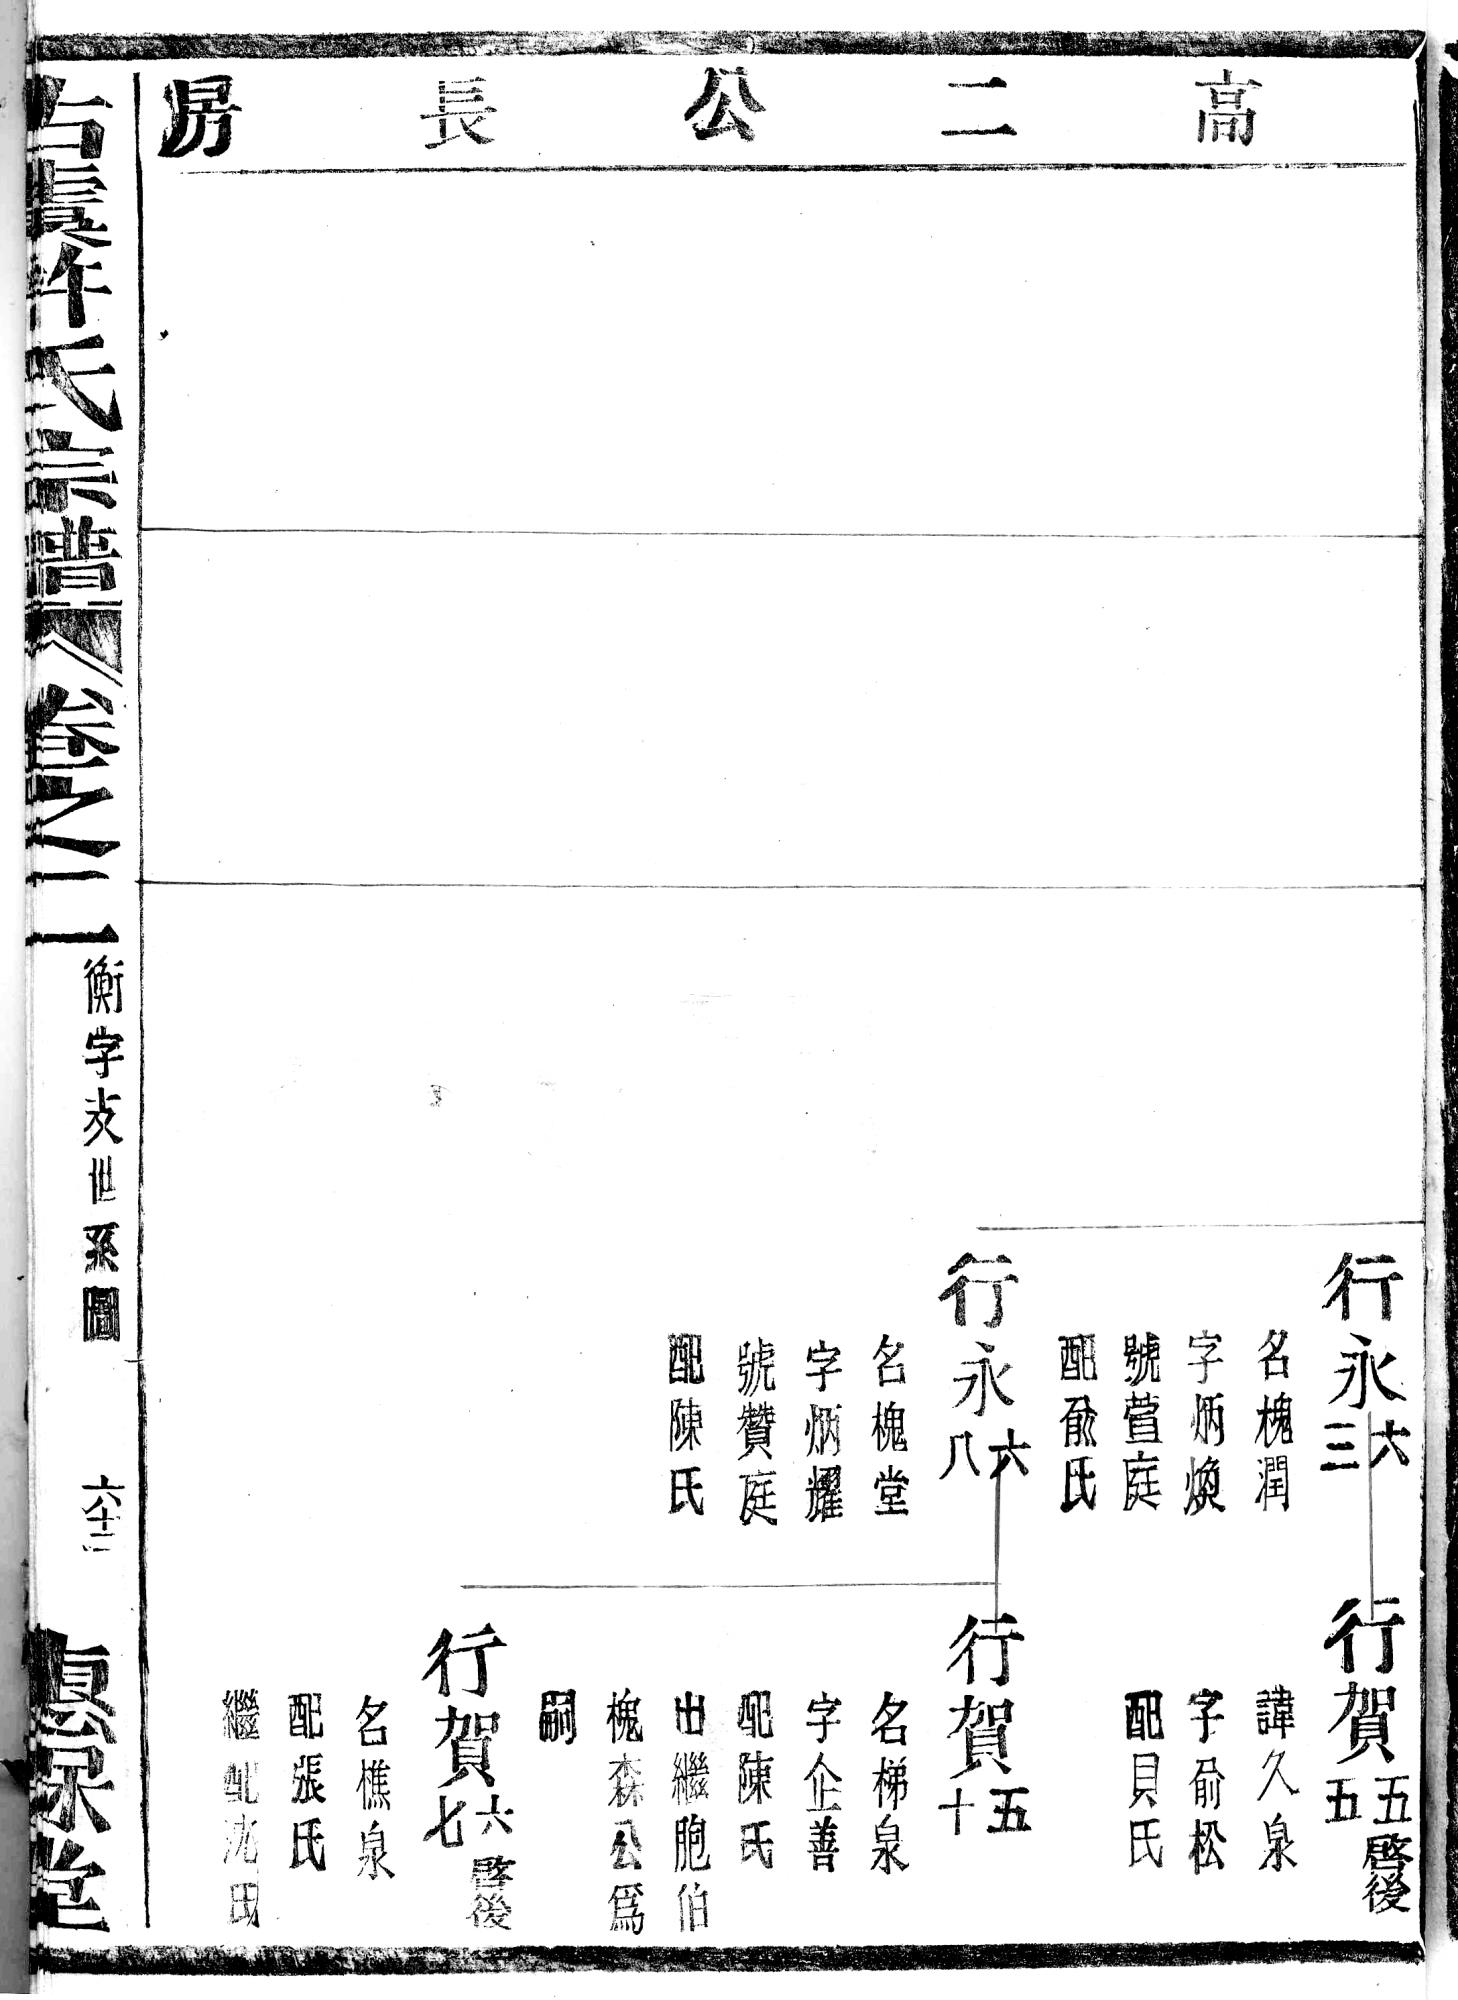 高二公長房
行永六三
名槐潤
字炳煥
號萱庭
配俞氏
行永六八
名槐堂
字炳耀
號贊庭
配陳氏
行賀五五啓後
諱久泉
字俞松
配貝氏
行賀五十
名梯泉
字企善
配陳氏
出繼胞伯
槐森公爲
嗣
行賀六七啓後
名樵泉
配張氏
繼配沈氏
許氏宗譜
卷之二
衡字支世系圖
六十二
堂